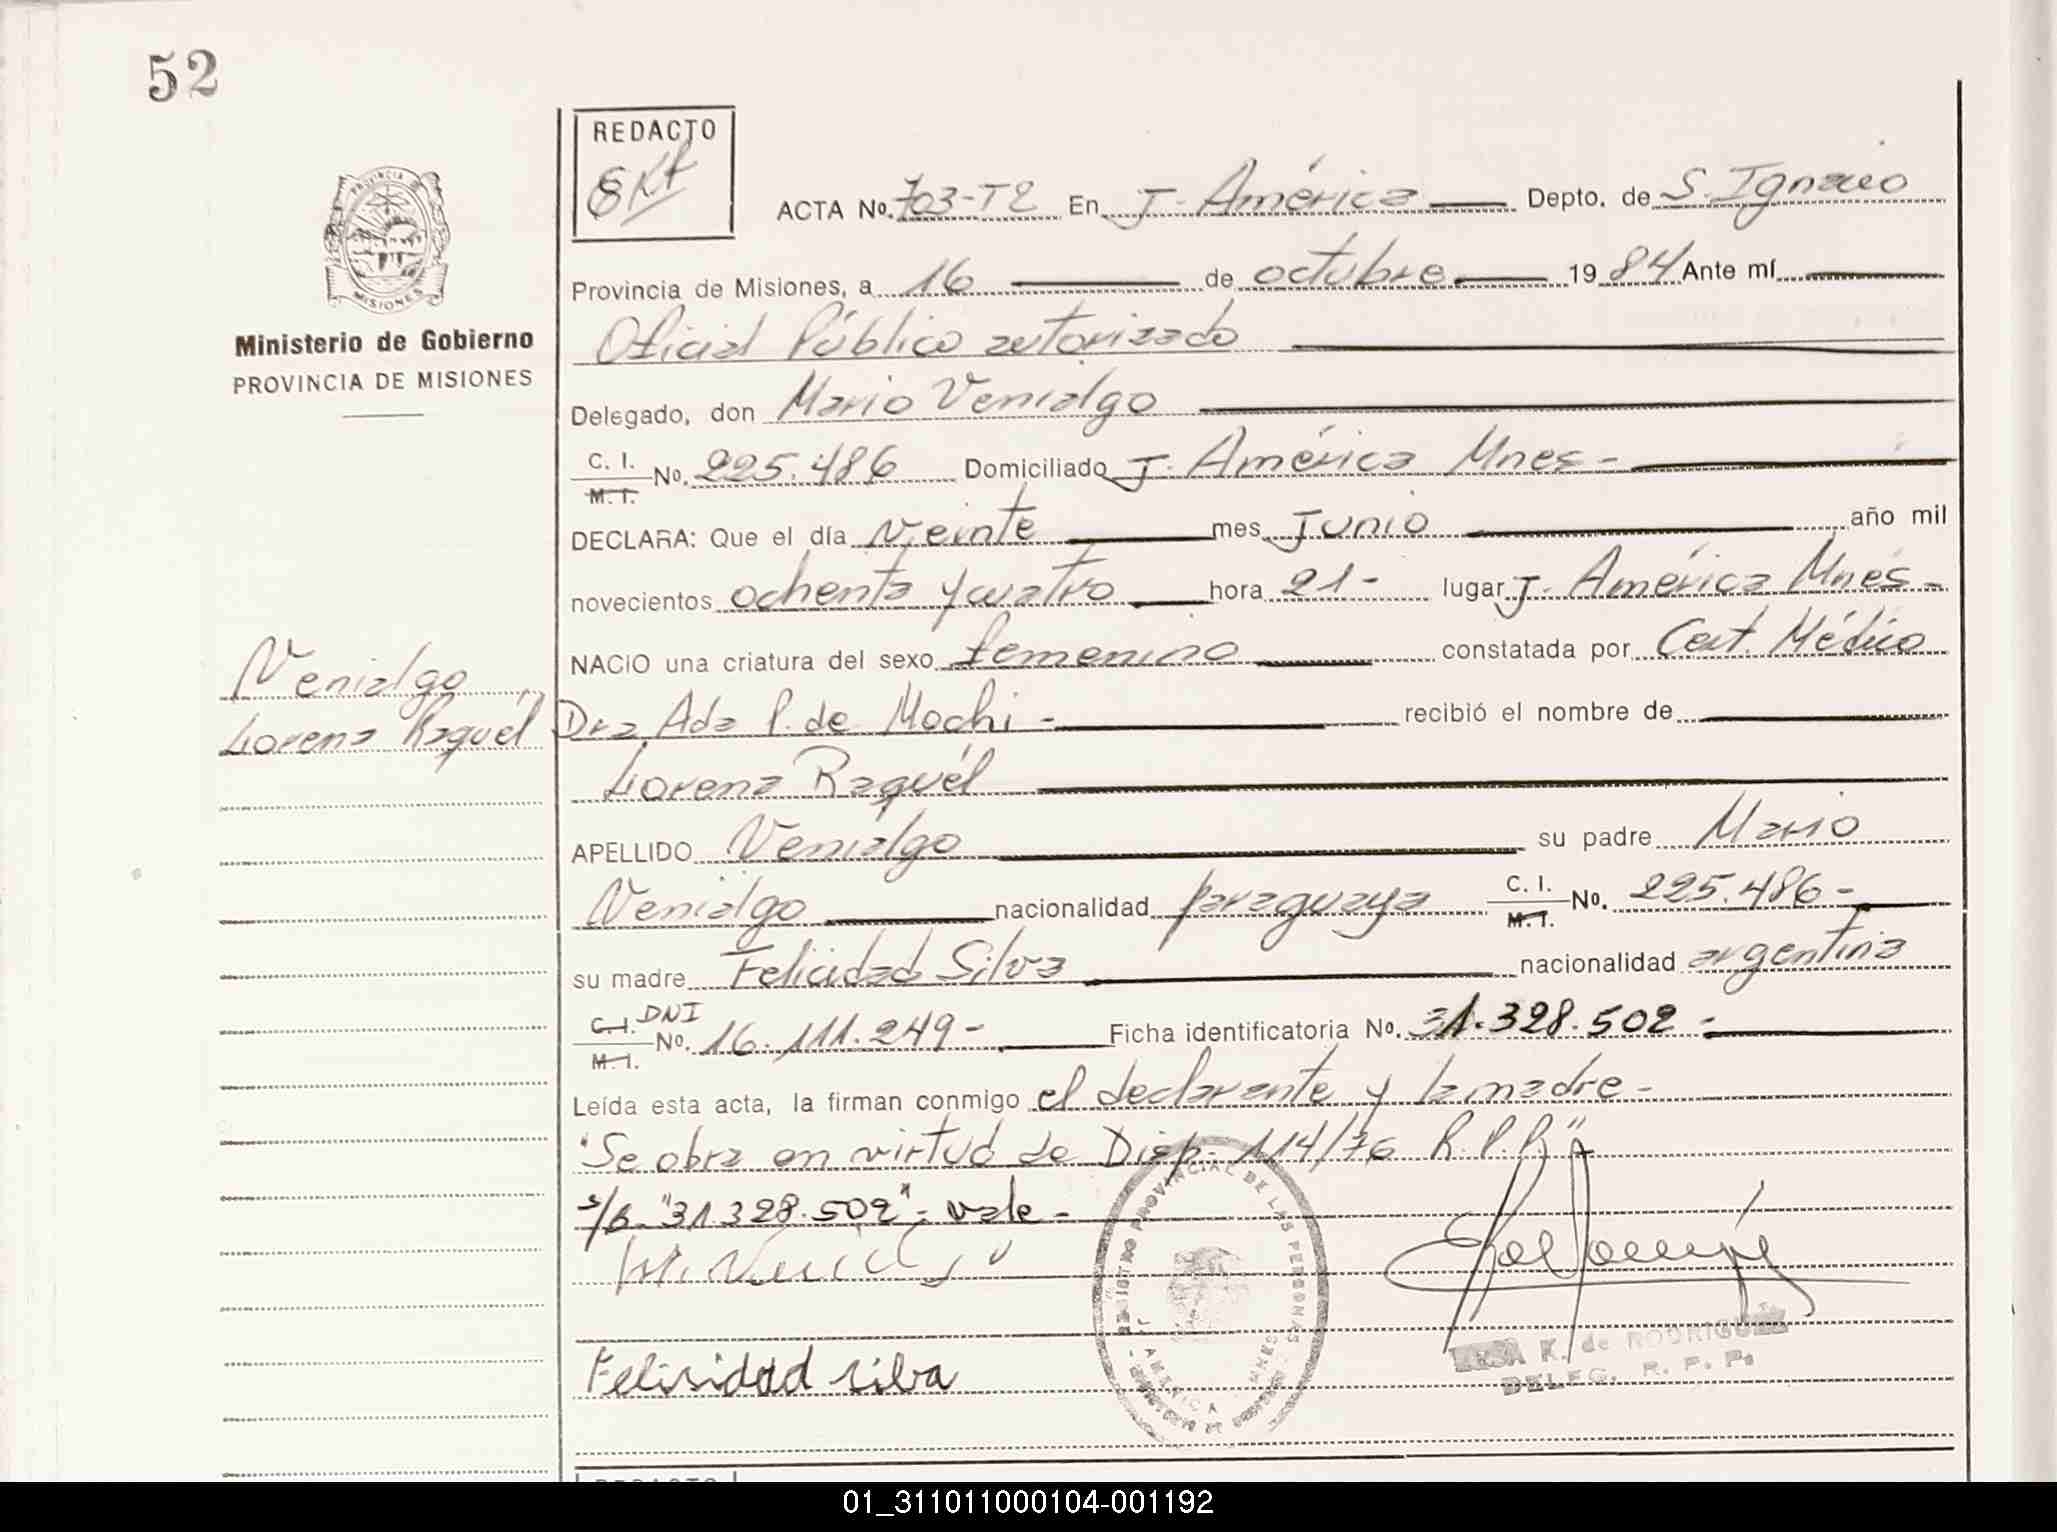 52
REDACTO
PROVINCIA DE
MISIONES
ACTA No. 703-T2 En J. América Depto. de S. Ignacio
Provincia de Misiones, a 16 de octubre 1984 Ante mí
Oficial Público autorizado
Ministerio de Gobierno
PROVINCIA DE MISIONES
Delegado, don Mario Venialgo
C. I. M. I. No. 225.486 Domiciliado J. América Mnes-
DECLARA: Que el día veinte mes Junio año mil
novecientos ochenta y cuatro hora 21- lugar J. América Mnes-
NACIO una criatura del sexo femenino constatada por Cert. Médico
Venialgo
Lorena Raquél
Dra Ada P. de Mochi - recibió el nombre de
Lorena Raquél
APELLIDO Venialgo su padre Mario
Venialgo nacionalidad paraguaya C. I. M. I. No. 225.486-
su madre Felicidad Silva nacionalidad argentina
C. I. M. I. DNI No. 16.111.249- Ficha identificatoria No. 31.328.502-
Leída esta acta, la firman conmigo el declarante y la madre-
"Se obra en virtud de Disp. 114/76 R.P.P."
s/b "31.328.502"- vale-
Felisidad silva
REGISTRO PROVINCIAL DE LAS PERSONAS
J. AMERICA MNES
K. de RODRIGUEZ
DELEG. R. P. P.
REDACTO
01_311011000104-001192